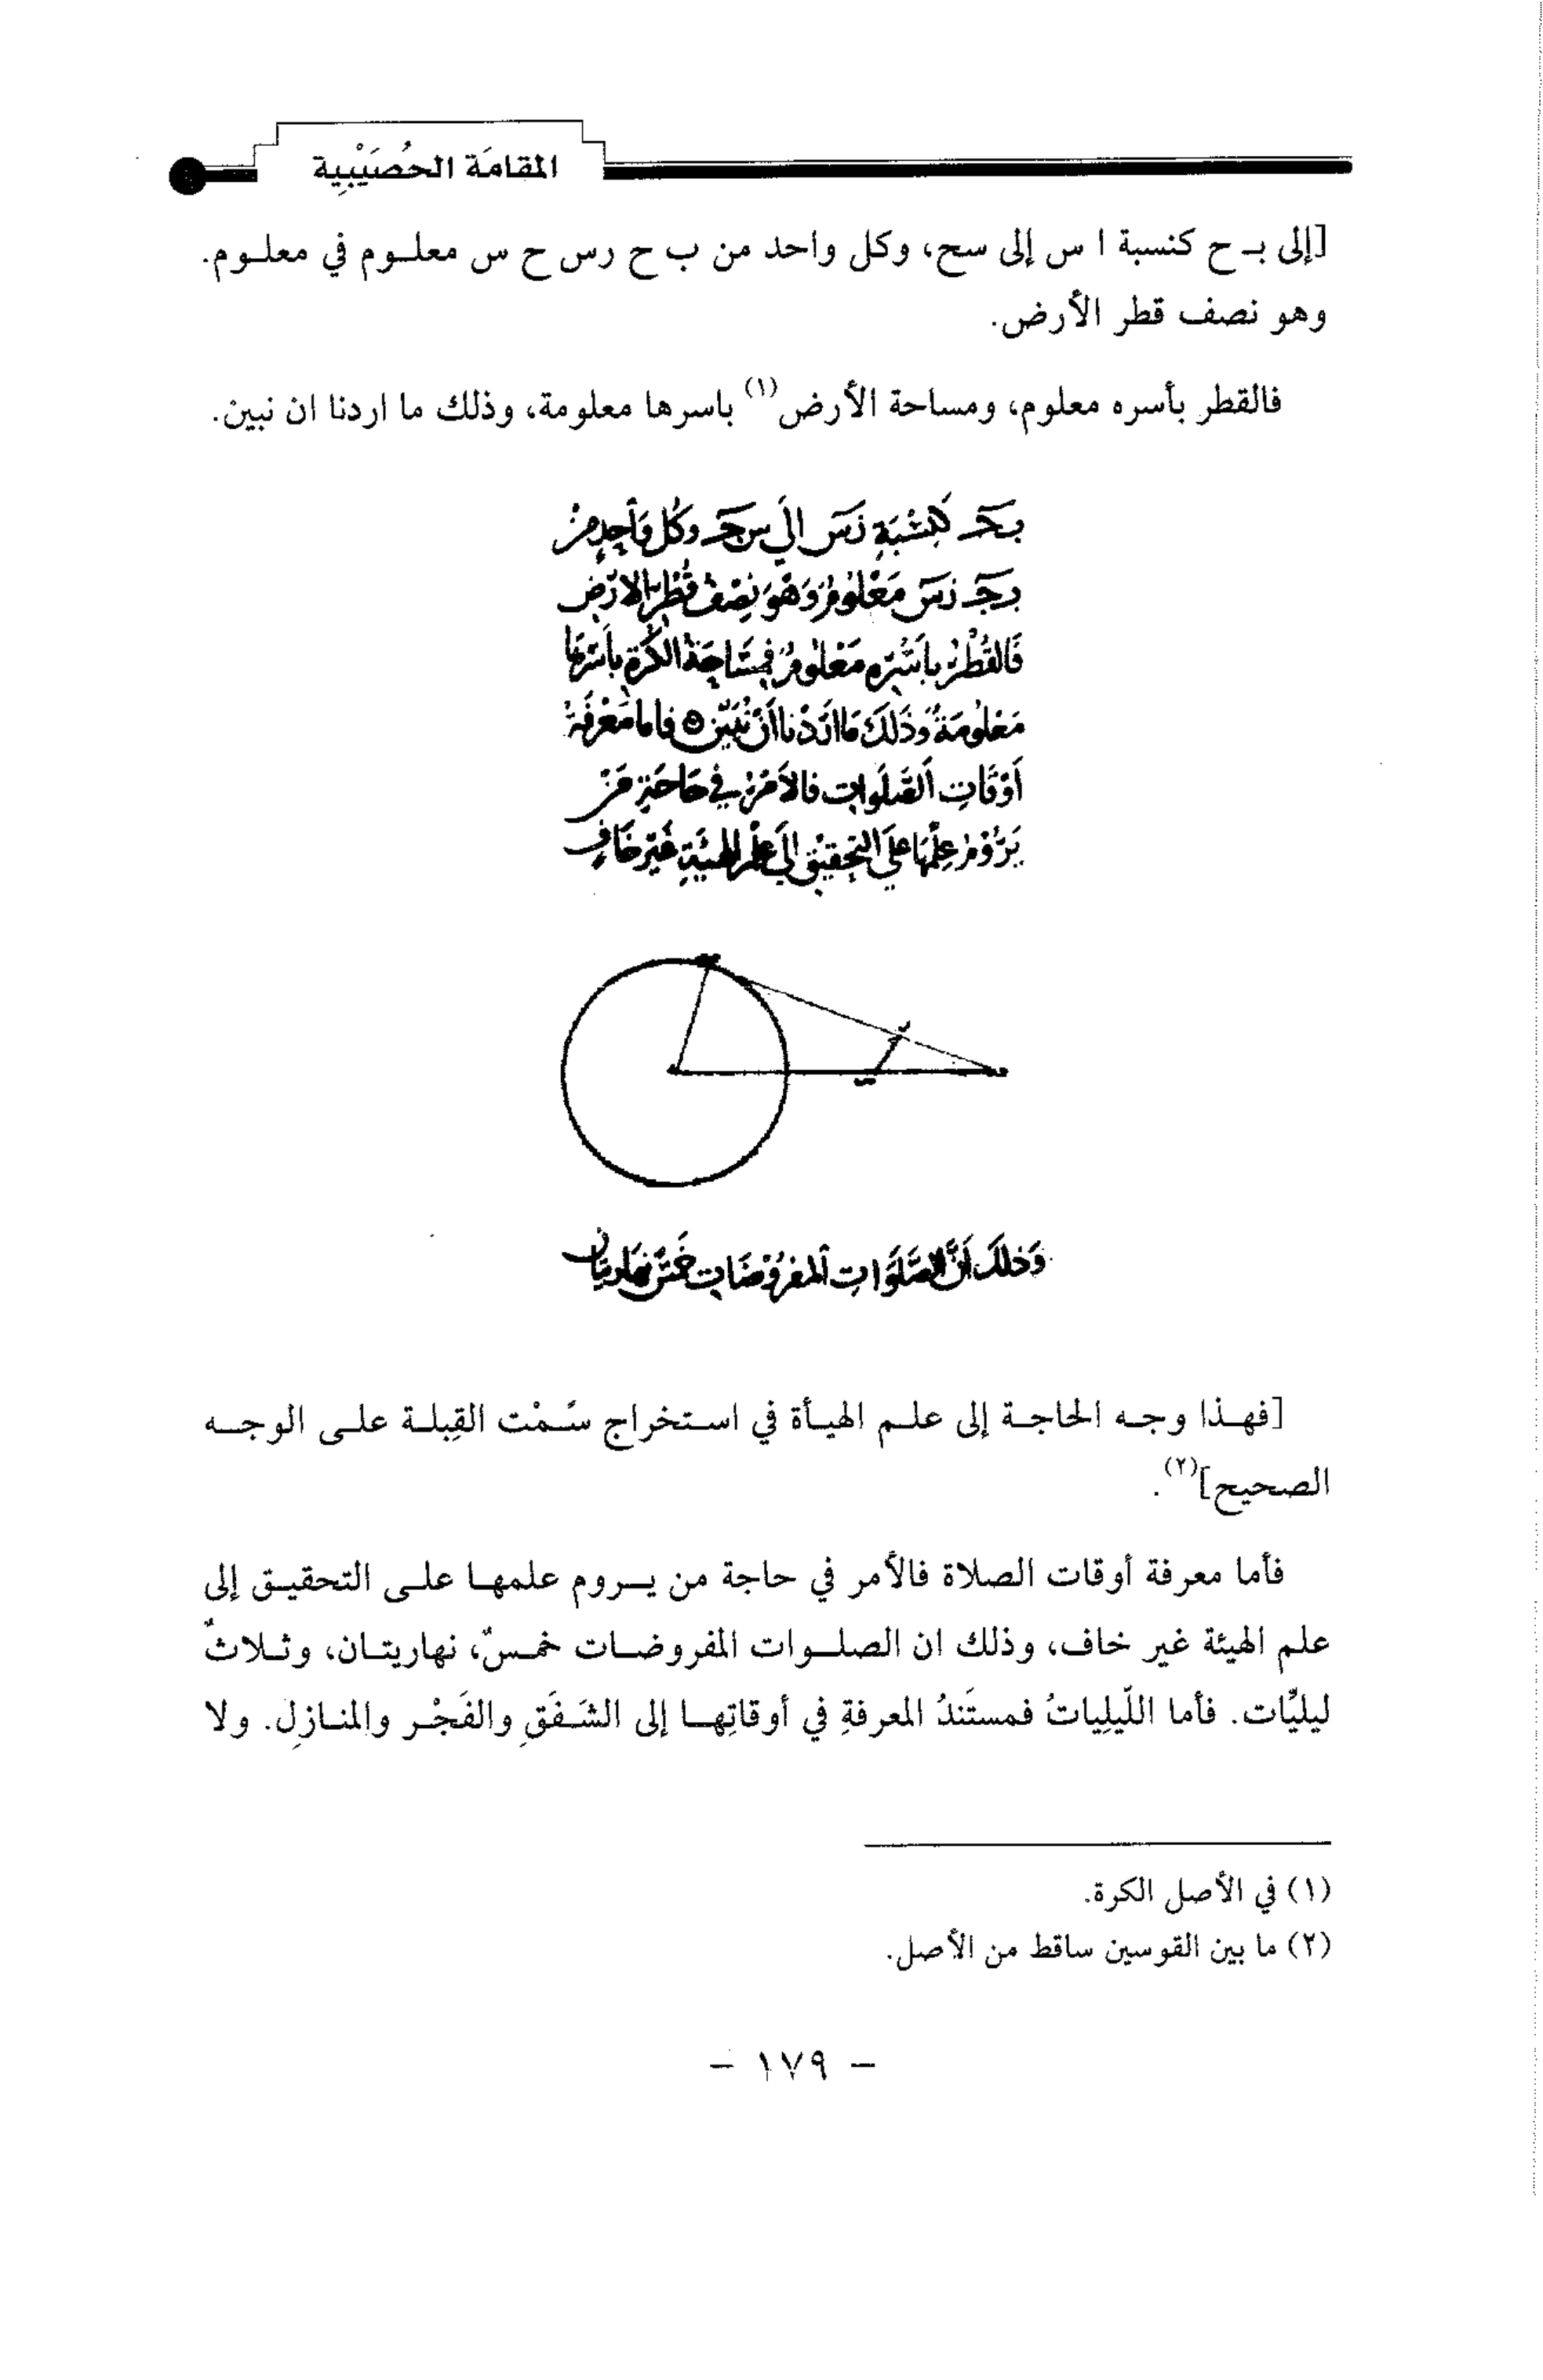 المقامَة الحُصَيْبِية
[إلى بـ ح كنسبة ا س إلى سح، وكل واحد من ب ح رس ح س معلـوم في معلـوم.
وهو نصف قطر الأرض.
فالقطر بأسره معلوم، ومساحة الأرض(١) باسرها معلومة، وذلك ما اردنا ان نبين.
بحـ كنِسْبَةِ زَسَ الىَ سحـ وكُل وَاحِدٍ مِنْ
بحـ زسَ مَعْلوُمٌ وَهْوَ نِصْفُ قُطْرِ الارْضِ
فَالقُطْرُ بِاَسْرِهِ مَعْلوُمٌ فمِسَاحَةُ الكُرَةِ بِاَسْرِهَا
مَعْلوُمَةٌ وَذَلكَ مَا اَرَدْنا اَنْ نُبَيّنَ ۞ فاما مَعْرِفَةُ
اَوْقَاتِ الصَّلَواتِ فالاَمْرُ فيْ حَاجَةِ مَنْ
يَرُوْمُ عِلْمَهَا عَلىَ التحِقيْقِ اِلىَ عِلْمِ الهَيْئَةِ غَيْرُ خَافٍ
وَذلكَ اَنَّ الصَّلَوَاتِ المَفْرُوْضَاتِ خمَسٌ نَهارِيتَانِ
[فهـذا وجـه الحاجـة إلى علـم الهيـأة في اسـتخراج سَـمْت القِبلـة علـى الوجـه
الصحيح](٢).
فأما معرفة أوقات الصلاة فالأمر في حاجة من يـروم علمهـا علـى التحقيـق إلى
علم الهيئة غير خاف، وذلك ان الصلـوات المفروضـات خمـسٌ، نهاريتـان، وثـلاثٌ
ليليَّات. فأما اللّيلِياتُ فمستَندُ المعرفةِ في أوقاتِهـا إلى الشَـفَقِ والفَجْـر والمنـازِلِ. ولا
(١) في الأصل الكرة.
(٢) ما بين القوسين ساقط من الأصل.
– ١٧٩ –